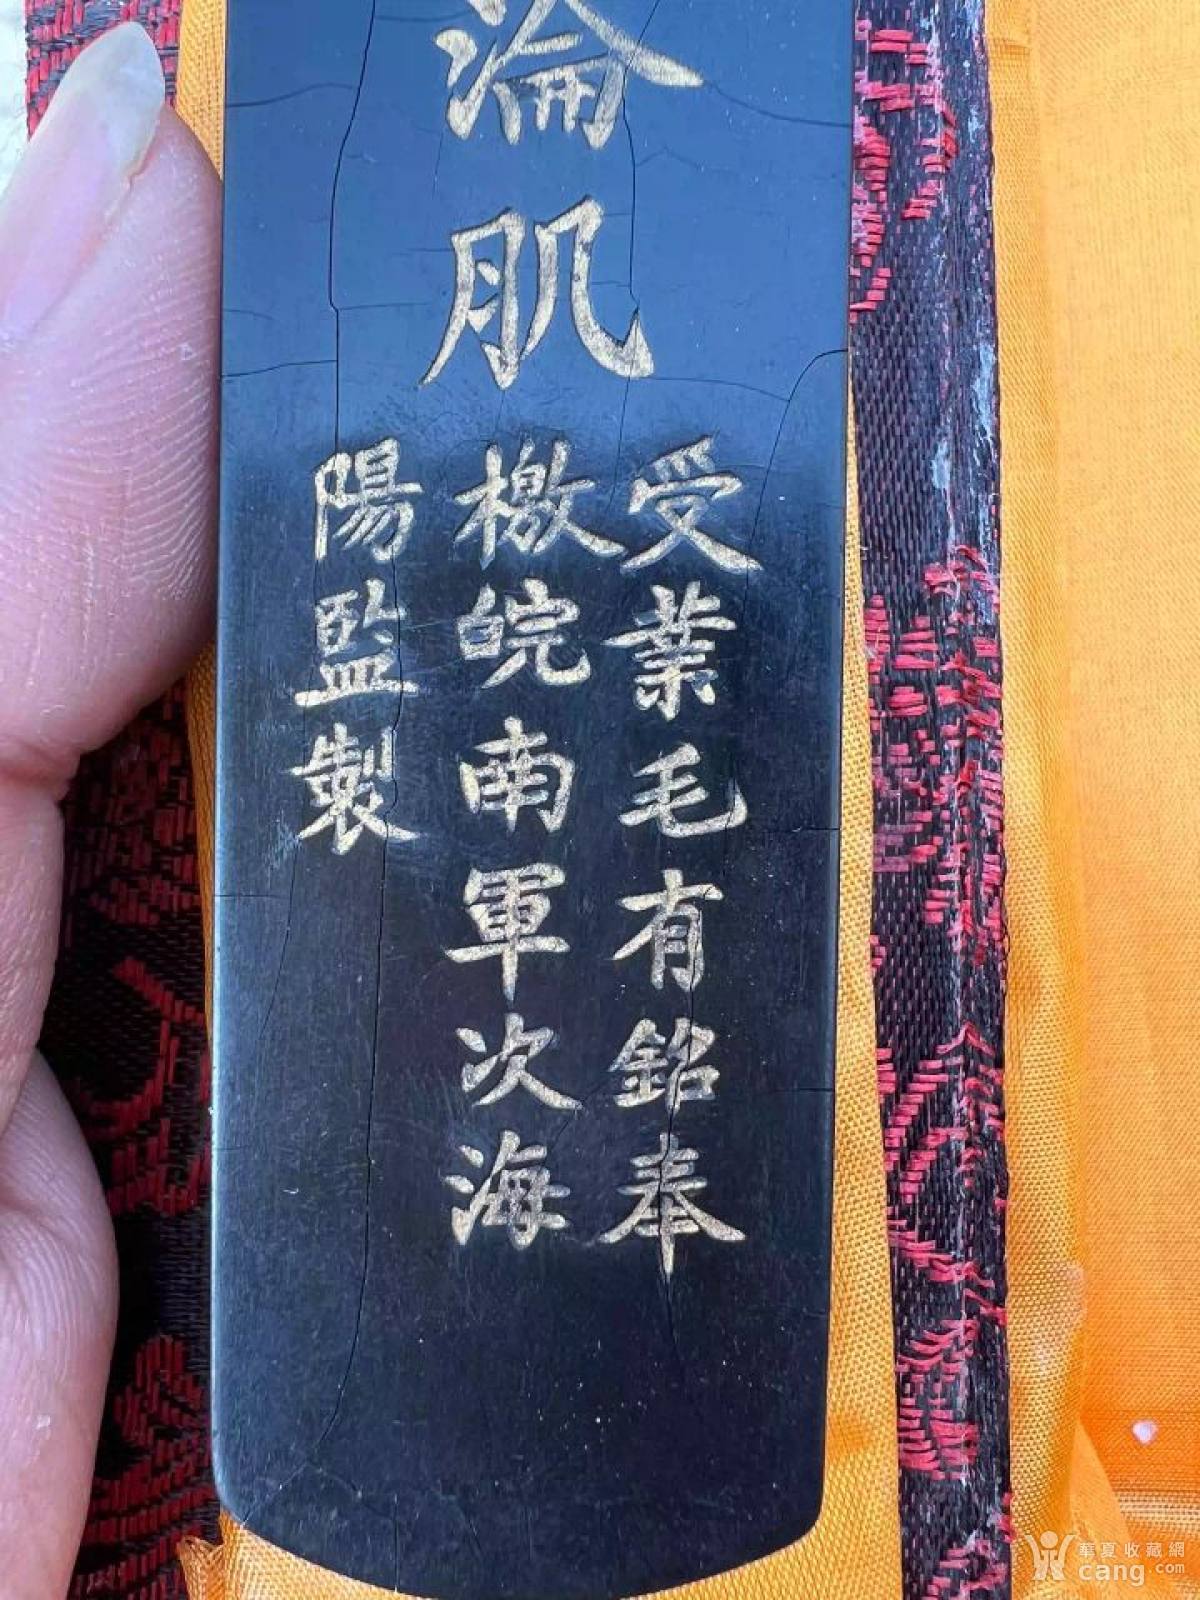 淪肌
受業毛有銘奉
檄皖南軍次海
陽監製
華夏收藏網
cang.com